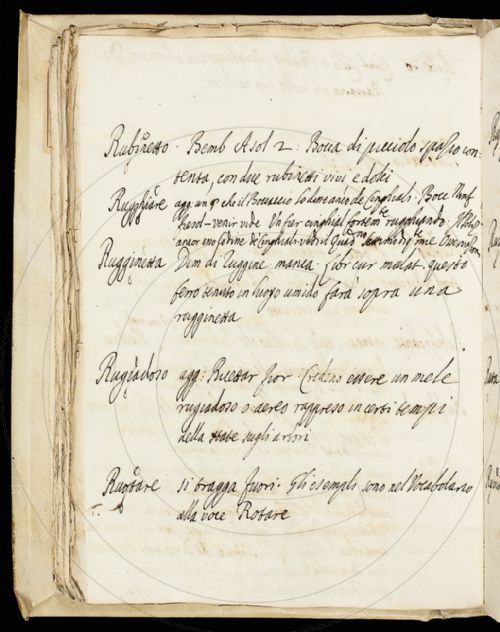 Rubinetto. Bemb Asol 2: Bocca di picciolo spazio con:
tenta, con due rubinetti vivi e dolci
Rugghiare agg: un che il Boccaccio lo dinear de Cinghiali. Bocc Ninf
Fiesol - venir vide Un fier cinghial fortem.te rugghiando.
ancor de Cinghiali vedi il
Rugginetta Dim di Ruggine manca. questo
ferro tenuto in luogo umido farà sopra una
rugginetta
Rugiadoso agg: Ricettar fior. Credono essere un mele
rugiadoso o aereo rappreso in certi tempi
della state sugli arbori
Ruotare si tragga fuori. Gli esempli sono nel Vocabolario
alla voce Rotare